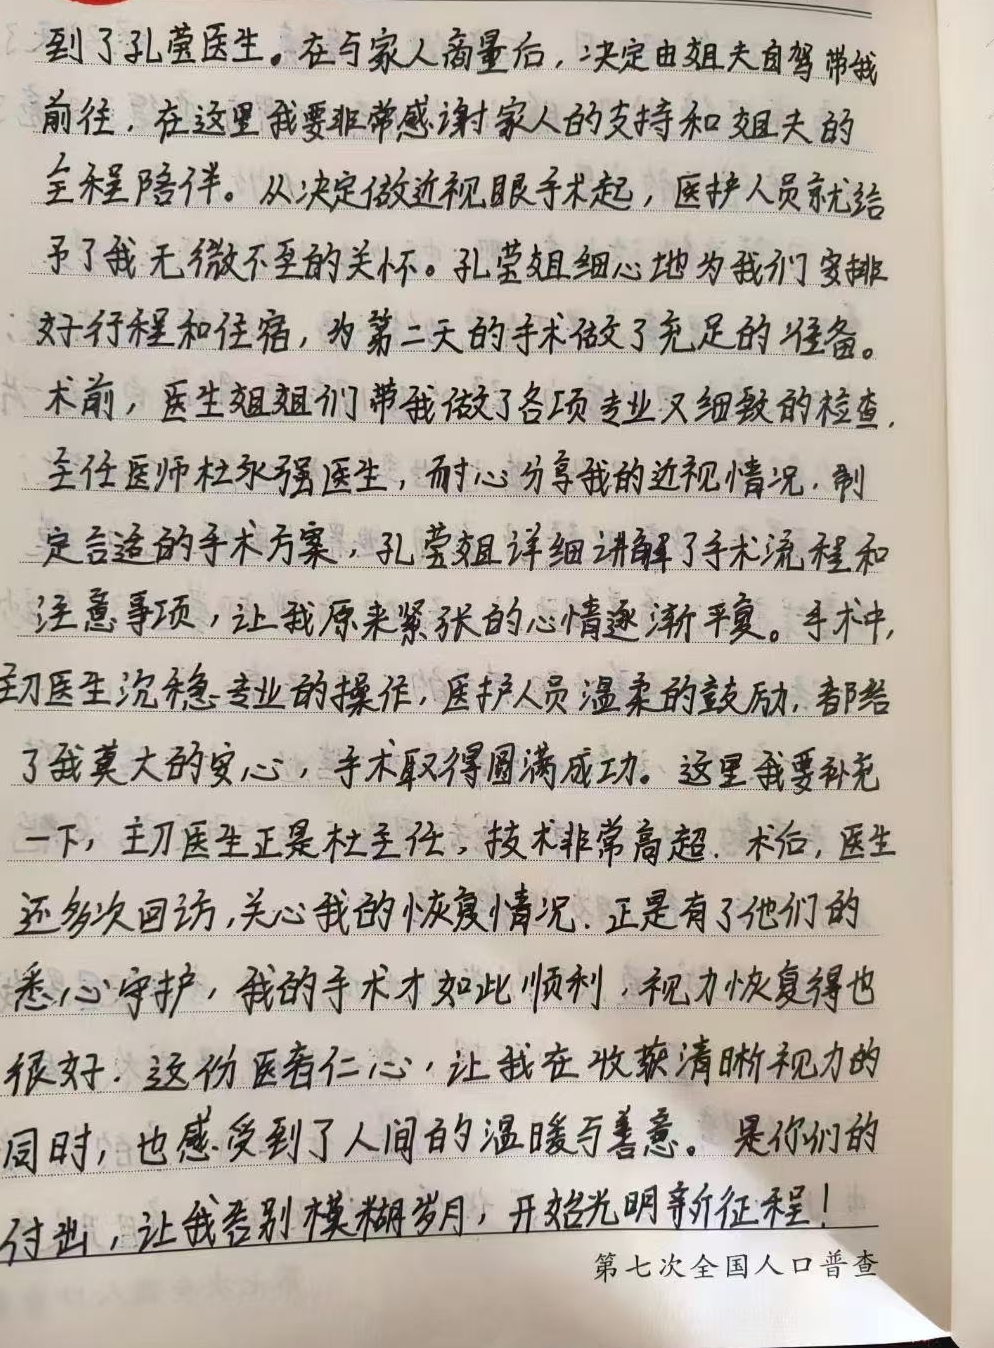 到了孔莹医生。在与家人商量后，决定由姐夫自驾带我
前往，在这里我要非常感谢家人的支持和姐夫的
全程陪伴。从决定做近视眼手术起，医护人员就给
予了我无微不至的关怀。孔莹姐细心地为我们安排
好行程和住宿，为第二天的手术做了充足的准备。
术前，医生姐姐们带我做了各项专业又细致的检查，
主任医师杜永强医生，耐心分享我的近视情况，制
定合适的手术方案，孔莹姐详细讲解了手术流程和
注意事项，让我原来紧张的心情逐渐平复。手术中，
主刀医生沉稳专业的操作，医护人员温柔的鼓励，都给
了我莫大的安心，手术取得圆满成功。这里我要补充
一下，主刀医生正是杜主任，技术非常高超．术后，医生
还多次回访，关心我的恢复情况．正是有了他们的
悉心守护，我的手术才如此顺利，视力恢复得也
很好．这份医者仁心，让我在收获清晰视力的
同时，也感受到了人间的温暖与善意。是你们的
付出，让我告别模糊岁月，开始光明新征程！
第七次全国人口普查